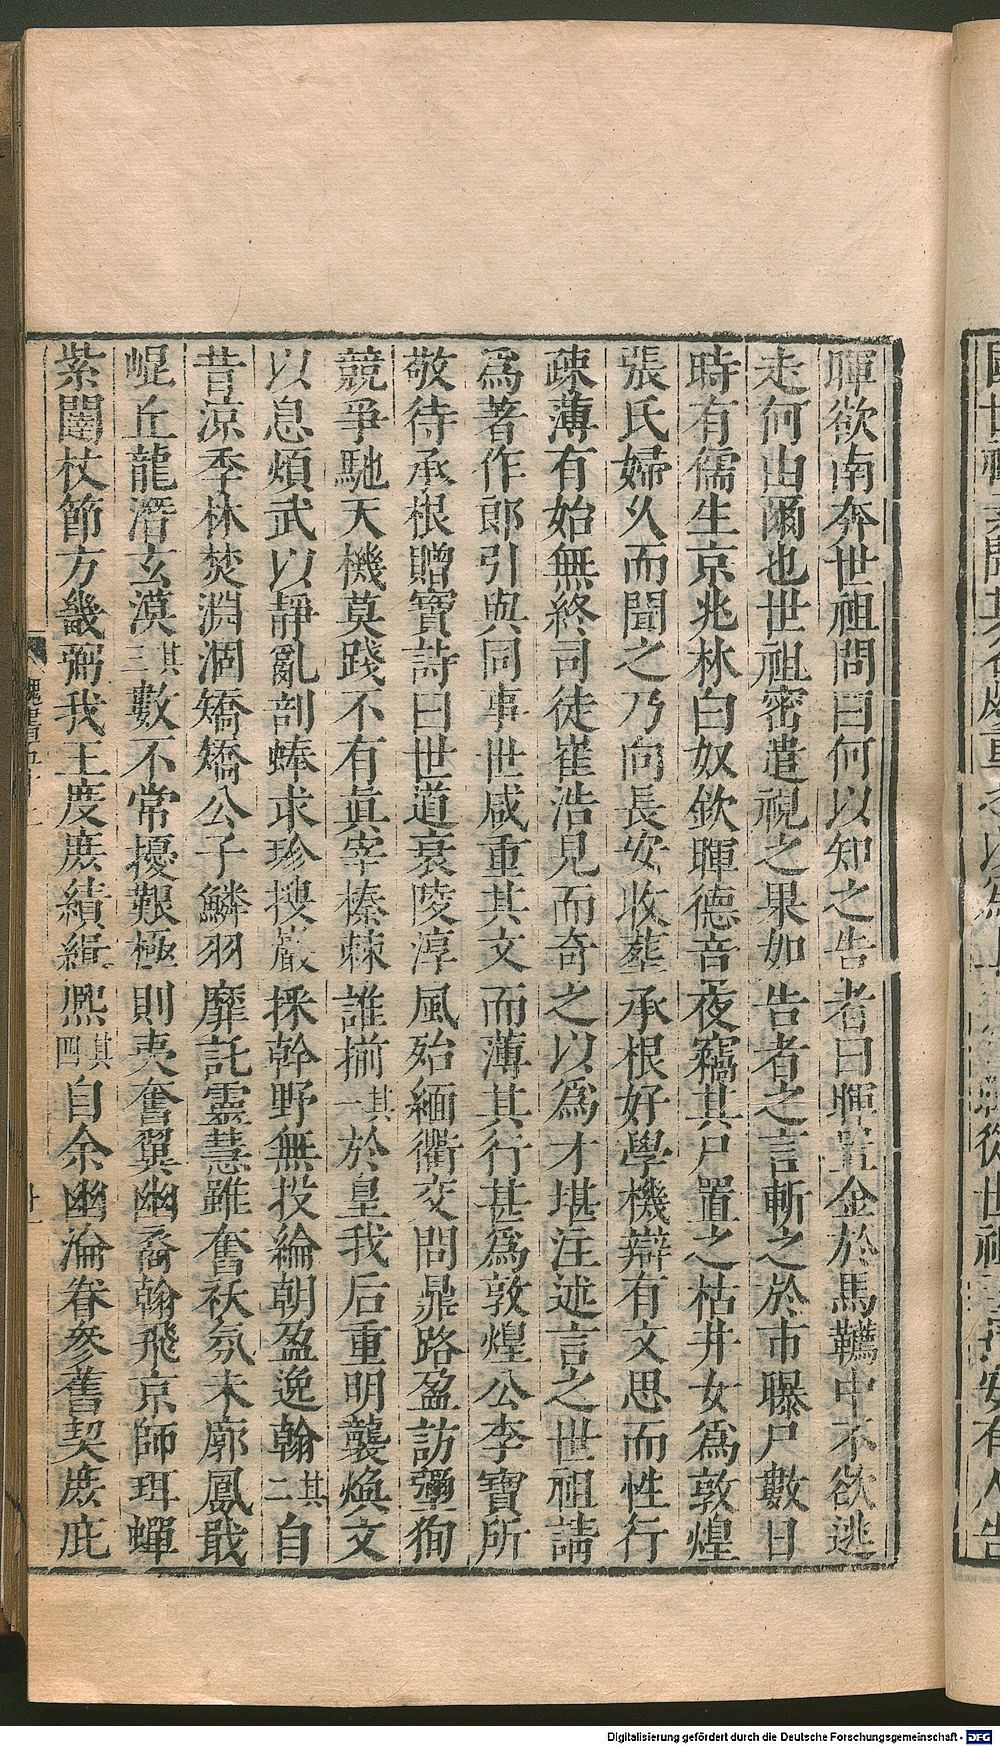 暉欲南奔世祖問曰何以知之告者曰暉置金於馬韉中不欲逃
走何由爾也世祖密遣視之果如告者之言斬之於市曝尸數日
時有儒生京兆林白奴欽暉德音夜竊其尸置之枯井女爲敦煌
張氏婦久而聞之乃向長安收葬承根好學機辯有文思而性行
疎薄有始無終司徒崔浩見而奇之以爲才堪注述言之世祖請
爲著作郎引與同事世咸重其文而薄其行甚爲敦煌公李寶所
敬待承根贈寶詩曰世道衰陵淳風殆緬衢交問鼎路盈訪璽徇
競爭馳天機莫踐不有眞宰榛棘誰揃其一於皇我后重明襲煥文
以息煩武以靜亂剖蜯求珍搜巖採幹野無投綸朝盈逸翰其二自
昔涼季林焚淵涸矯矯公子鱗羽靡託靈慧雖奮祅氛未廓鳳戢
崐丘龍潛玄漠其三數不常擾艱極則夷奮翼幽裔翰飛京師珥蟬
紫闥杖節方畿弼我王度庶績緝熙其四自余幽淪眷參舊契庶庇
魏書五十二
十一
Digitalisierung gefördert durch die Deutsche Forschungsgemeinschaft - DFG